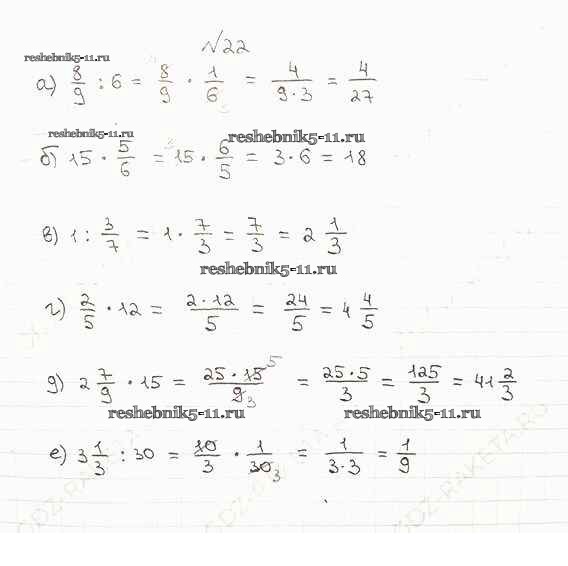 №22
reshebnik5-11.ru
а) 8/9 : 6 = 8/9 · 1/6 = 4/(9·3) = 4/27
reshebnik5-11.ru
reshebnik5-11.ru
б) 15 · 5/6 = 15 · 6/5 = 3·6 = 18
в) 1 : 3/7 = 1 · 7/3 = 7/3 = 2 1/3
reshebnik5-11.ru
г) 2/5 · 12 = (2·12)/5 = 24/5 = 4 4/5
д) 2 7/9 · 15 = (25·15 5)/(9 3) = (25·5)/3 = 125/3 = 41 2/3
reshebnik5-11.ru reshebnik5-11.ru
е) 3 1/3 : 30 = 10/3 · 1/30 3 = 1/(3·3) = 1/9
GDZ-RAKETA.RO